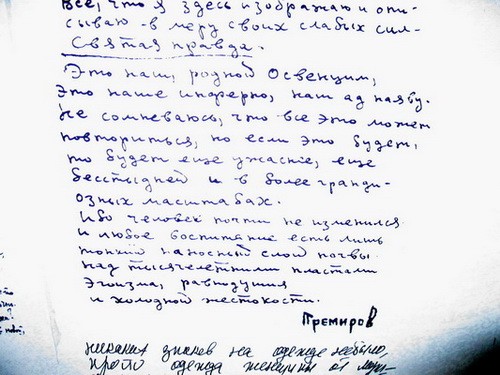 Все, что я здесь изображаю и опи-
сываю - в меру своих слабых сил -
Святая правда.
Это наш, родной Освенцим,
Это наше инферно, наш ад наяву.
Не сомневаюсь, что все это может
повториться, но если это будет,
то будет еще ужасніе, еще
бесстыдней и в более гранди-
озных масштабах.
Ибо человек почти не изменился
и любое воспитание есть лишь
тонкий наносный слой почвы
над тысячелетними пластами
Эгоизма, равнодушия
и холодной жестокости.
Премиров
никаких знаков на одежде не было,
просто одежда женщин от